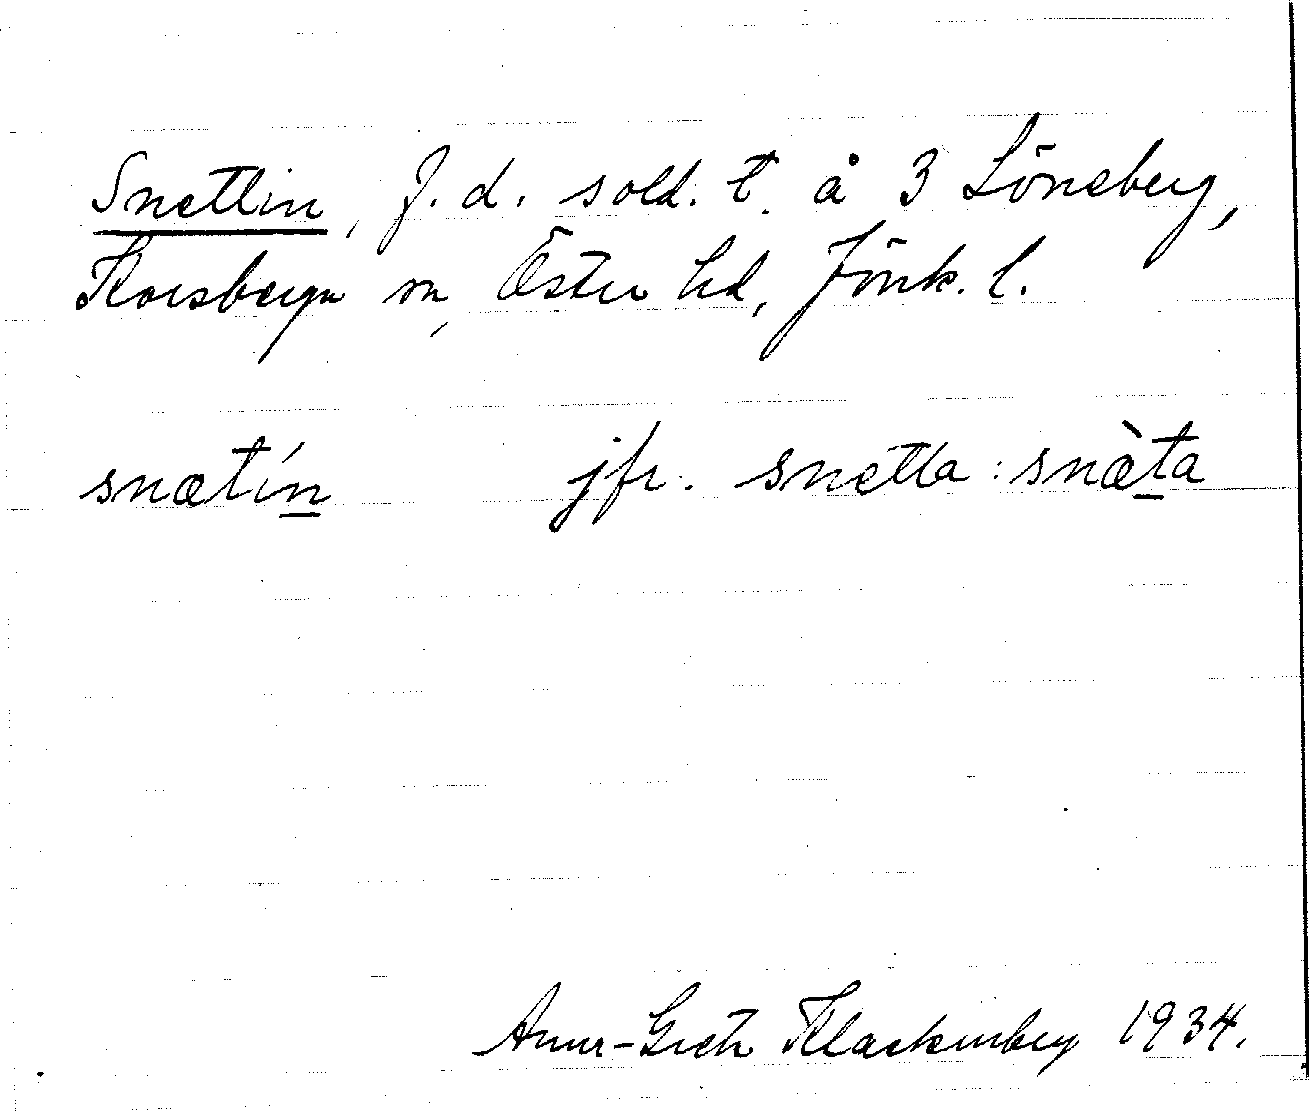 Snettin, f. d. sold. t. å 3 Löneberg,
Korsberga sn, Östra hd, Jönk. l.
snætín jfr. snetta : snæ̀ta
Anna-Greta Klackenberg 1934.